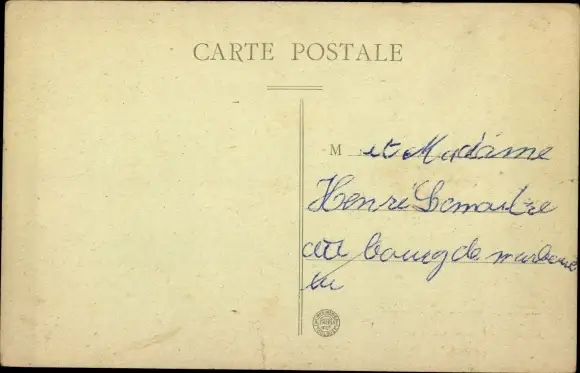 CARTE POSTALE
M et Madame
Henri Lemaitre
au bourg de